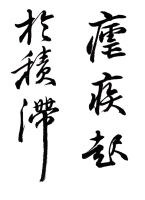 瘧疾起
於積滯